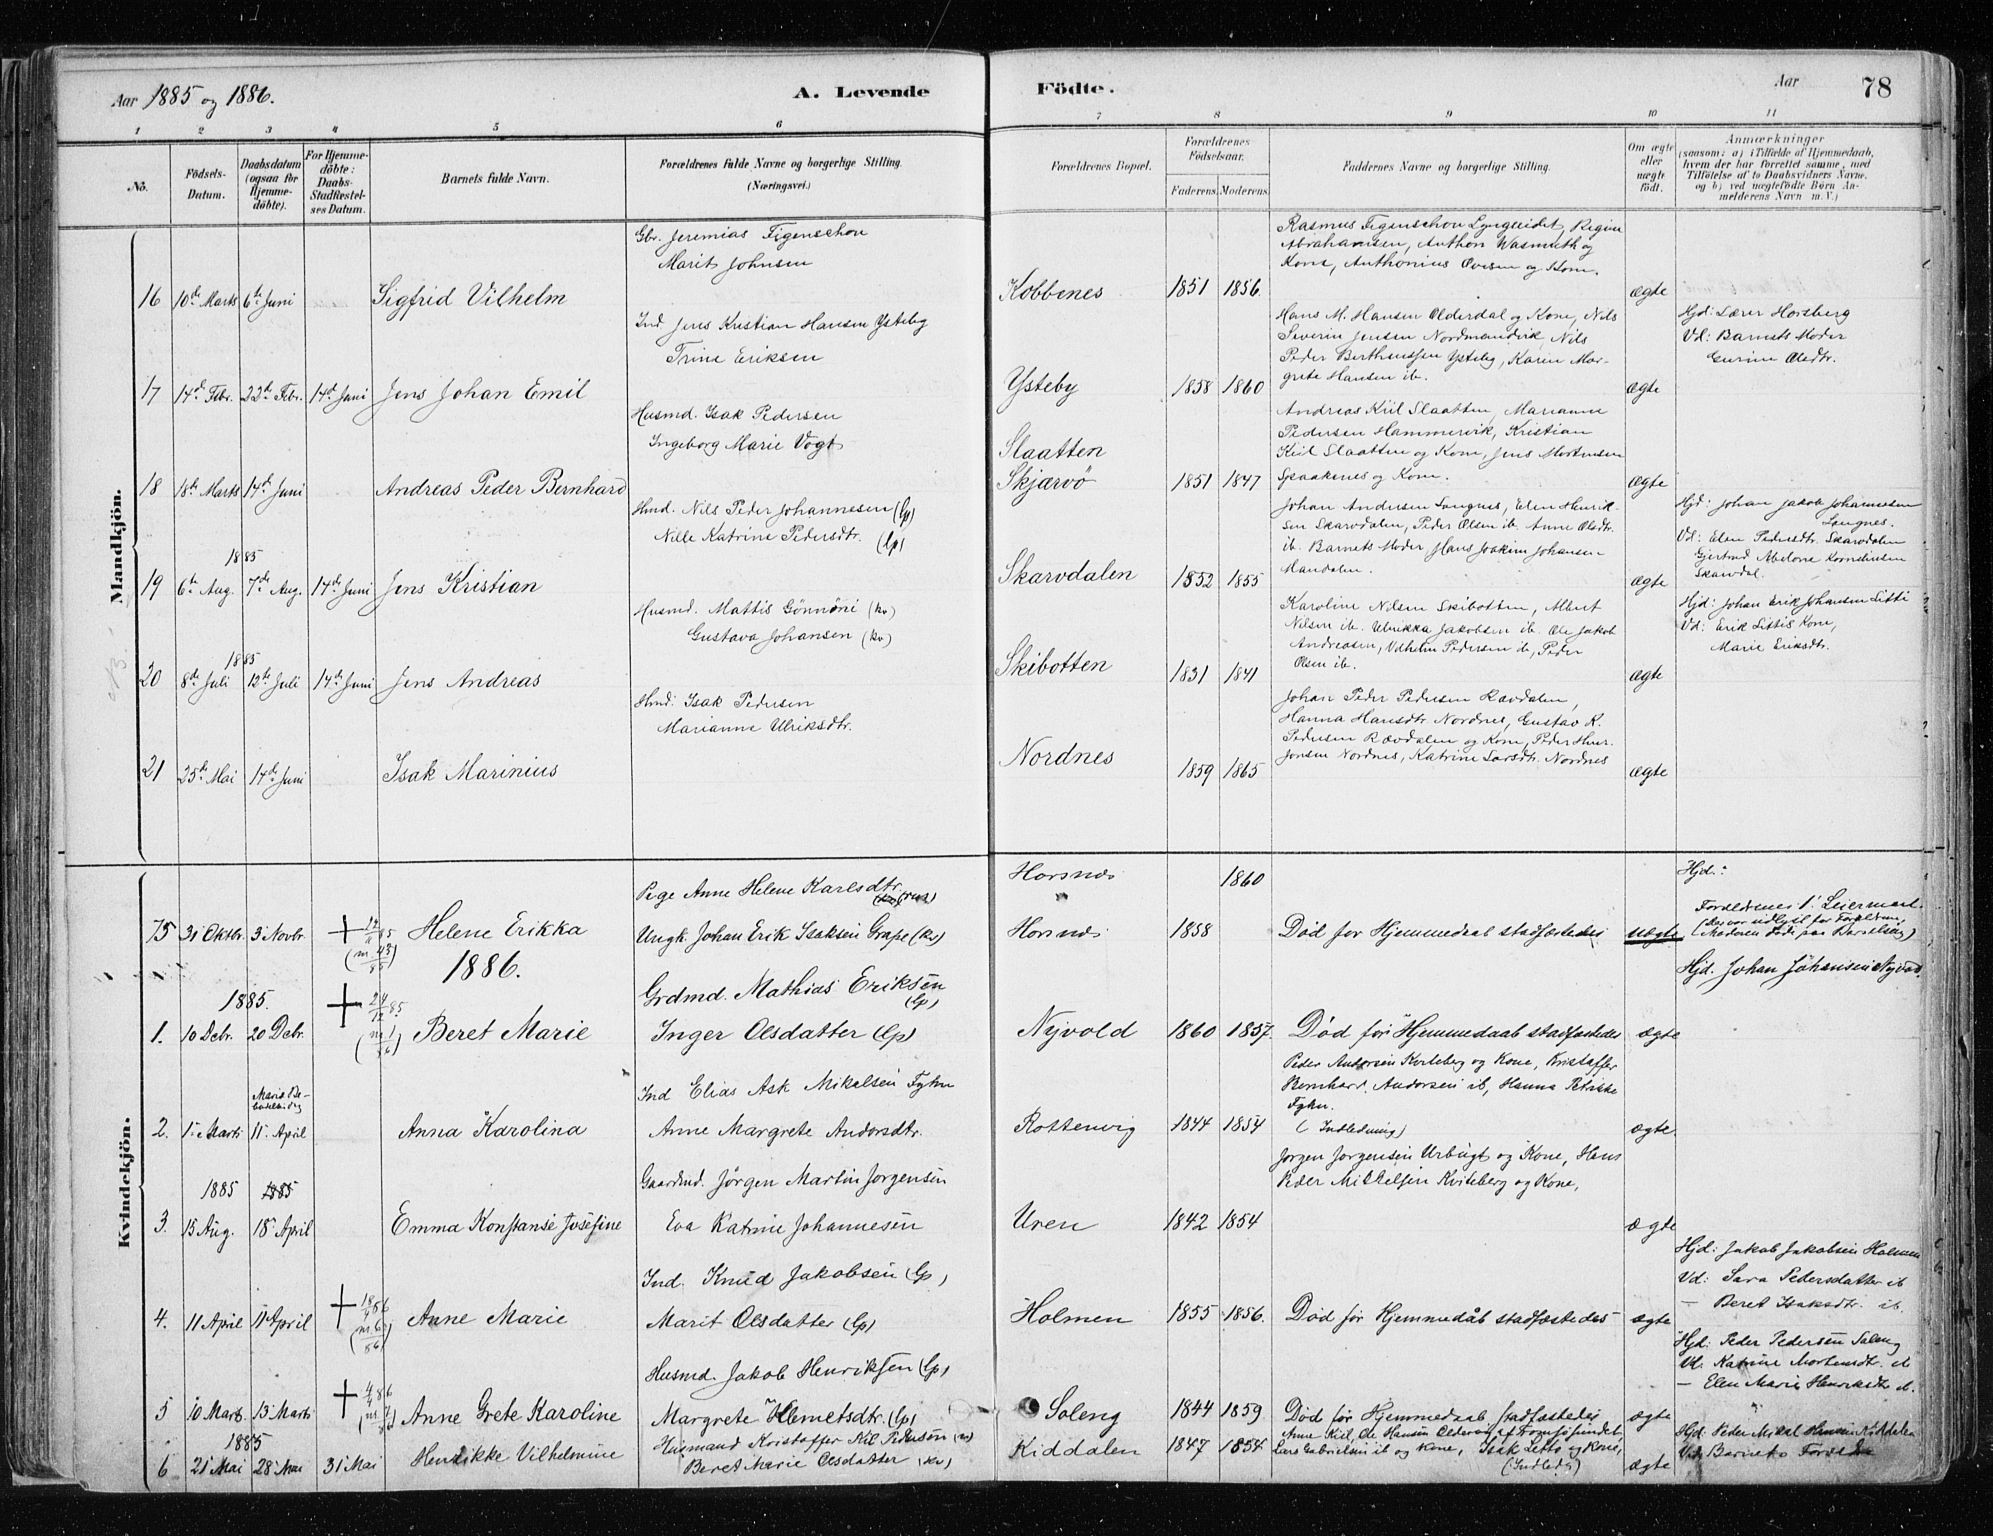 Aar 1885 og 1886.
A. Levende Födte.
Aar 78
1 2 3 4 5 6 7 8 9 10 11
No.
Födsels-Datum.
Daabsdatum (ogsaa for Hjemme-döbte).
For Hjemme-döbte: Daabs-Stadfæstel-ses Datum.
Barnets fulde Navn.
Forældrenes fulde Navne og borgerlige Stilling.
(Næringsvei.)
Forældrenes Bopæl.
Forældrenes Födselsaar.
Faderens. Moderens.
Faddernes Navne og borgerlige Stilling.
Om ægte eller uægte födt.
Anmærkninger
(saasom: a) i Tilfælde af Hjemmedaab,
hvem der har forrettet samme, med
Tilföielse af to Daabsvidners Navne,
og b) ved uægtefödte Börn An-
melderens Navn m. V.)
Mandkjön.
Gbr. Jeremias Figenschou
Marit Johnsen
Rasmus Figenschou Lyngseidet, Regine
Abrahamsen, Anthon Wasmuth og
Kone, Anthonius Ovesen og Kone.
16 10de Marts 6te Juni Sigfrid Vilhelm Kobbenes 1851 1856. ægte
Ind. Jens Kristian Hansen Ysteby
Trine Eriksen
Hans M. Hansen Olderdal og Kone, Nils
Severin Jensen Nordmandvik, Nils
Peder Berthensen Ysteby, Karen Mar-
grete Hansen ib.
Hjd: Lærer Horsberg
Vd: Barnets Moder
Gurine Olsdtr.
17 14de Febr. 22de Febr. 14de Juni Jens Johan Emil Ysteby 1858 1860 ægte
Husmd. Isak Pedersen
Ingeborg Marie Vogt
Slaatten
Skjærvö
Andreas Kiil Slaatten, Marianne
Pedersen Hammervik, Kristian
Kiil Slaatten og Kone, Jens Mortensen
Spaakenes og Kone.
18 18de Marts 14de Juni Andreas Peder Bernhard 1851 1847 ægte
Hmd. Nils Peder Johannesen (Lp)
Nille Katrine Pedersdtr. (Lp)
Johan Andersen Lyngnes, Elen Henrik-
sen Skarvdalen, Peder Olsen ib. Anne Olsdtr.
ib. Barnets Moder Hans Joakim Johansen
Mandalen.
Hjd: Johan Jakob Johannesen
Lyngnes.
Vd: Elen Pedersdtr. Skarvdalen
Gjertrud Abelone Kornelius­sen
Skarvdal.
1885
19 6te Aug. 7de Aug. 14de Juni Jens Kristian Skarvdalen 1852 1855 ægte
Husmd. Mattis Gönnöni (kv)
Gustava Johansen (kv)
Karoline Nilsen Skibotten, Albert
Nilsen ib. Ulrikka Jakobsen ib. Ole Jakob
Andreasen, Vilhelm Pedersen ib, Peder
Olsen ib.
Hjd: Johan Erik Johansen Litti
Vd: Erik Littis Kone,
Marie Eriksdtr.
1885
20 8de Juli 12te Juli 14de Juni Jens Andreas Skibotten 1831 1841 ægte
Hmd: Isak Pedersen
Marianne Ulriksdtr.
Johan Peder Pedersen Rævdalen,
Hanna Hansdtr Nordnes, Gustav K.
Pedersen Rævdalen og Kone, Peder Henr.
Jensen Nordnes, Katrine Larsdtr. Nordnes
21 25de Mai 14de Juni Isak Marinius Nordnes 1859 1865 ægte
Kvindekjön.
Pige Anne Helene Karlsdtr. Horsnæs 1860 Hjd:
75 31 Oktbr. 3 Novbr. Helene Erikka Ungk. Johan Erik Isaksen Grape (kv) Horsnæs 1858 Død før Hjemmedaab stadfæstedes uægte
Forældrenes 1' Leiermaal
1886.
1885.
Grdmd. Mathias Eriksen (Lp)
Hjd. Johan Johansen Nyvold.
1. 10 Decbr. 20 Decbr. Beret Marie Inger Olsdatter (Lp) Nyvold 1860 1857. Død før Hjemmedaab stadfæstedes ægte
Ind Elias Ask Mikalsen Fyhn
Peder Andersen Kviteberg og Kone, Kristoffer
Bernhard Andersen ib, Hanna Petrikke
Fyhn.
(Indledning)
Maria Be-
budelsesdag
2. 1ste Marts 11. April Anna Karolina Anne Margrete Andersdtr. Rottenvig 1844 1854 ægte.
Gaardmd. Jørgen Martin Jørgensen
Jørgen Jørgensen Urbugt og Kone, Hans
Peder Mikkelsen Kviteberg og Kone,
1885 1885
3. 15 Aug. 18 April Emma Konstanse Josefine Eva Katrine Johannesen Uren 1842 1854 ægte
Ind. Knud Jakobsen (Lp)
Hjd: Jakob Jakobsen Holmen
Vd: Sara Pedersdatter ib
— Beret Isaksdtr. ib.
4. 11 April 11 April Anne Marie Marit Olsdatter (Lp) Holmen 1855 1856. Død før Hjemmedåb stadfæstedes ægte
Husmd. Jakob Henriksen (Lp)
Hjd: Peder Pedersen Soleng
Vd: Katrine Mortensdtr. ib
— Elen Marie Henriksdtr ib.
5 10 Marts 15 Marts Anne Grete Karoline Margrete Klemetsdtr. (Lp) Soleng 1844 1859 Død før Hjemmedaab stadfæstedes ægte
1885
Husmand Kristoffer Kiil Pedersen (n)
Beret Marie Olsdatter (kv)
6 21 Mai 28 Mai 31 Mai Henrikke Vilhelmine Kiddalen 1847 1854 ægte
Lars Gabrielsen ib og Kone, Isak Letto og Kone,
(Indledg)
Hjd: Peder Mikal
Vd: Barnets